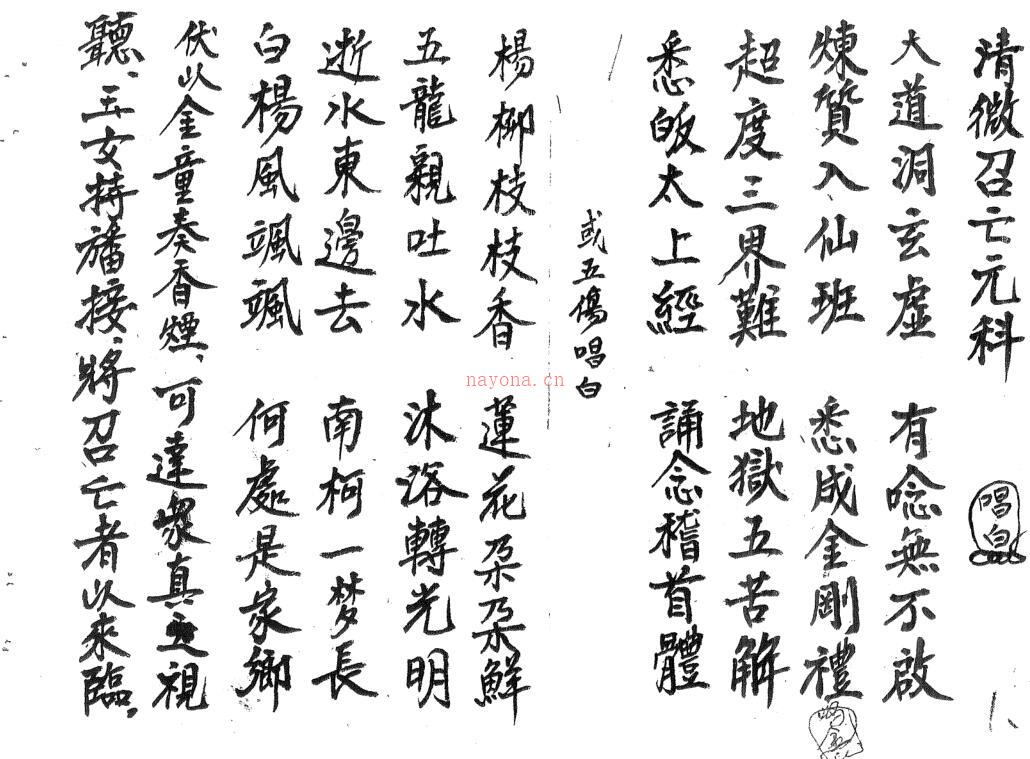 清微召亡元科 唱皂
大道洞玄虛 有唸無不啟
煉質入仙班 悉成金剛禮
超度三界難 地獄五苦解
悉皈太上經 誦念稽首體
或五傷唱白
楊柳枝枝香 蓮花朵朵鮮
五龍親吐水 沐浴轉光明
逝水東邊去 南柯一梦長
白楊風颯颯 何處是家鄉
伏以金童奏香煙，可達眾真之視
聽、玉女持旛接，將召亡者以來臨，
nayona.cn